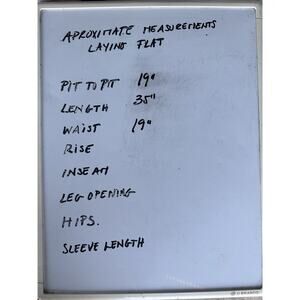 APROXIMATE MEASUREMENTS
LAYING FLAT
PIT TO PIT 19"
LENGTH 35"
WAIST 19"
RISE
INSEAM
LEG OPENING
HIPS.
SLEEVE LENGTH